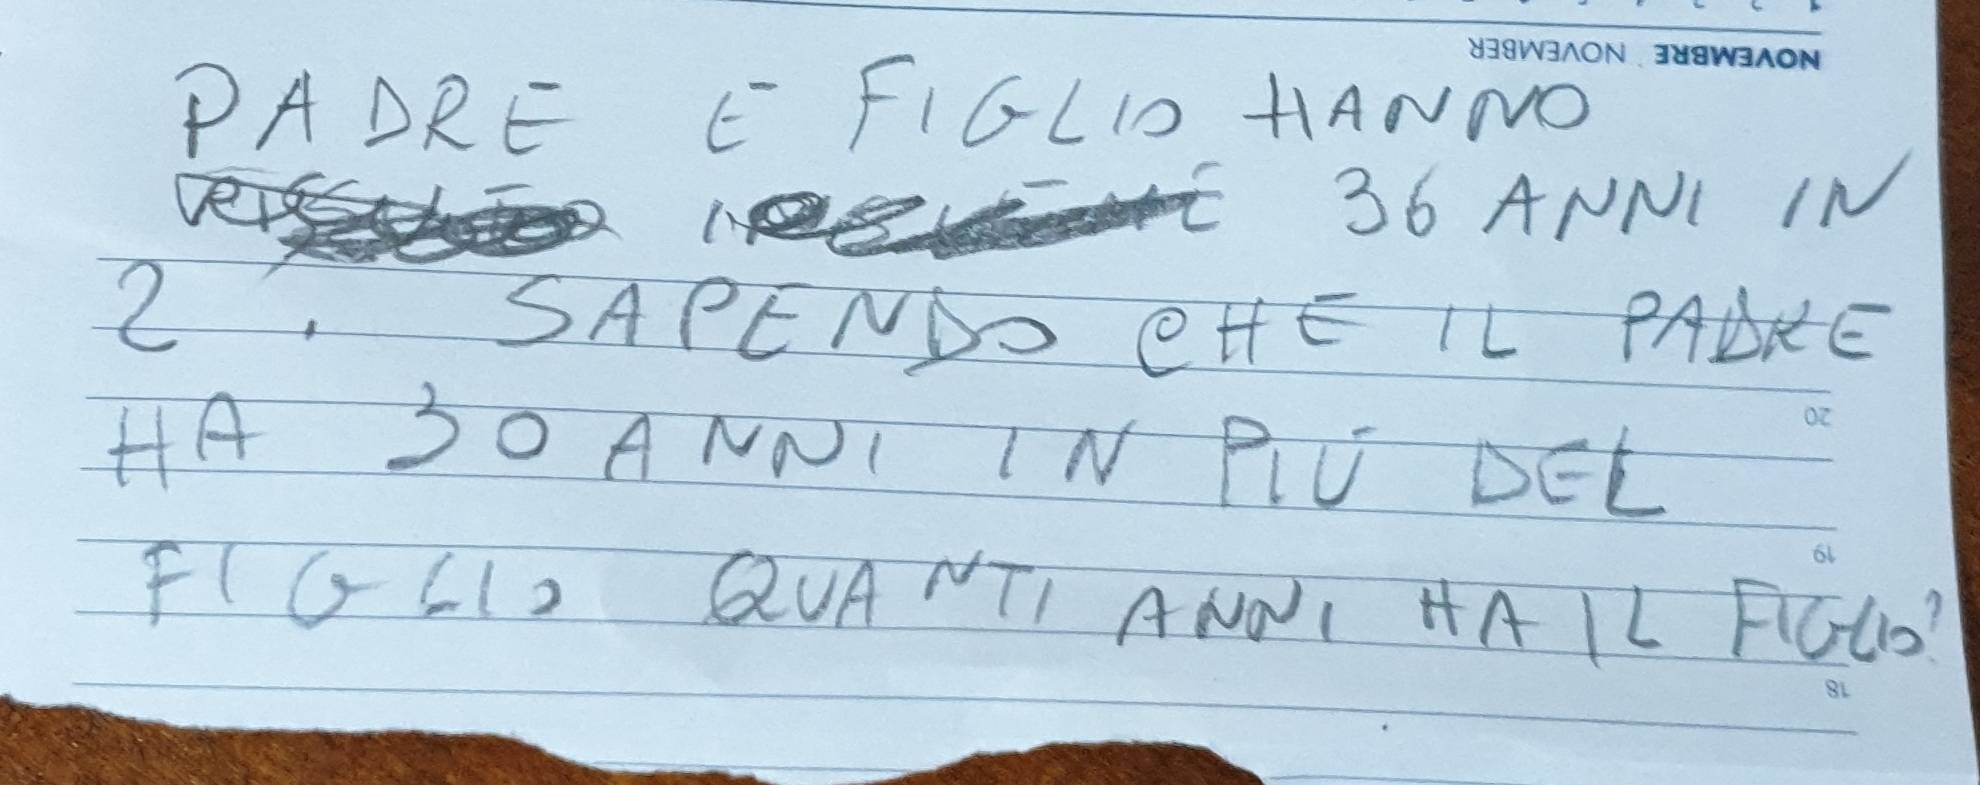 NOVEMBRE NOVEMBER
PADRE E FIGLIO HANNO
36 ANNI IN
2. SAPENDO CHE IL PADRE
20
HA 30 ANNI IN PIÙ DEL
19
FIGLIO QUANTI ANNI HA IL FIGLIO?
18